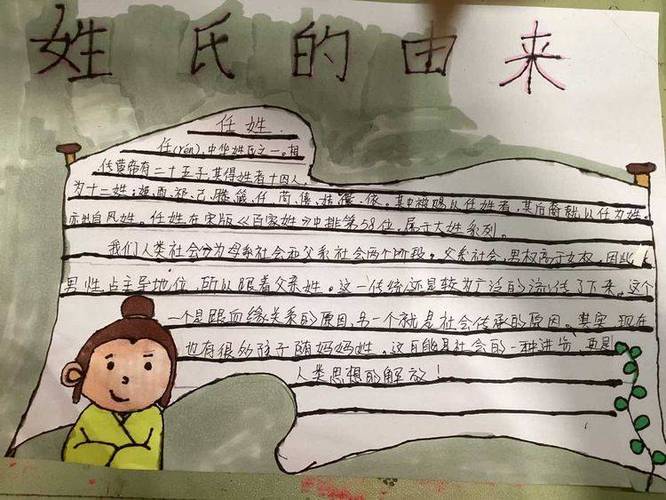 姓氏的由来
任姓
任(rén),中华姓氏之一。相
传黄帝有二十五子,其得姓者十四人,
为十二姓:姬、酉、祁、己、滕、箴、任、荀、僖、姞、儇、依。其中被赐以任姓者,其后裔就以任为姓。
亦出自风姓。任姓在宋版《百家姓》中排第58位,属于大姓系列。
我们人类社会分为母系社会和父系社会两个阶段。父系社会,男权高于女权,因此
男性占主导地位,所以跟着父亲姓。这一传统还是较为广泛的流传了下来。这个
一个是跟血缘关系的原因,另一个就是社会传承的原因。其实,现在
也有很多孩子随妈妈姓。这可能是社会的一种进步,更是
人类思想的解放!